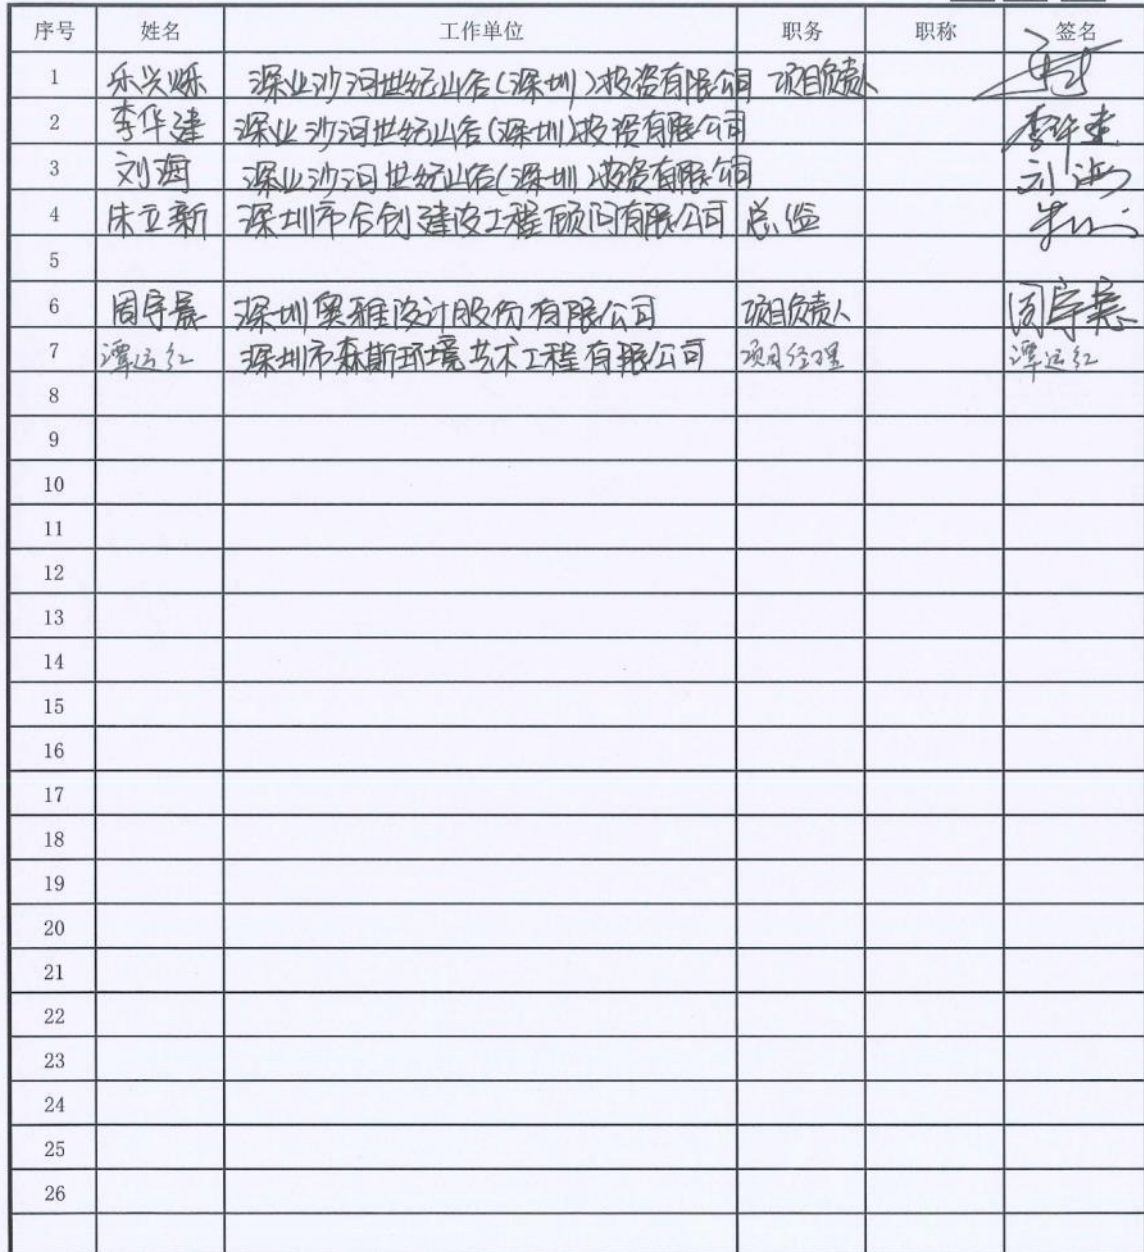 序号 姓名 工作单位 职务 职称 签名
1 乐兴烁 深业沙河世纪山谷(深圳)投资有限公司 项目负责人
2 李华建 深业沙河世纪山谷(深圳)投资有限公司 李华建
3 刘海 深业沙河世纪山谷(深圳)投资有限公司 刘海
4 朱立新 深圳市合创建设工程顾问有限公司 总监
5
6 周宇晨 深圳奥雅设计股份有限公司 项目负责人 周宇晨
7 谭运红 深圳市森斯环境艺术工程有限公司 项目经理 谭运红
8
9
10
11
12
13
14
15
16
17
18
19
20
21
22
23
24
25
26